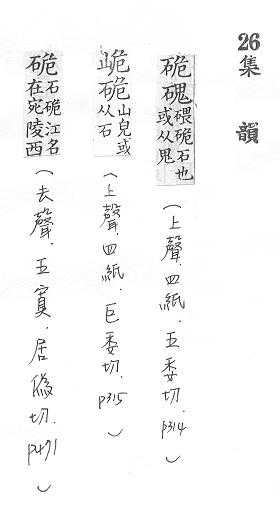 26
集韻
硊磈 碨硊石也或从鬼 (上聲.四紙.五委切.p314)
𡵆硊 山皃或从石 (上聲.四紙.巨委切.p315)
硊 石硊江名在宛陵西 (去聲.五寘.居偽切.p471)